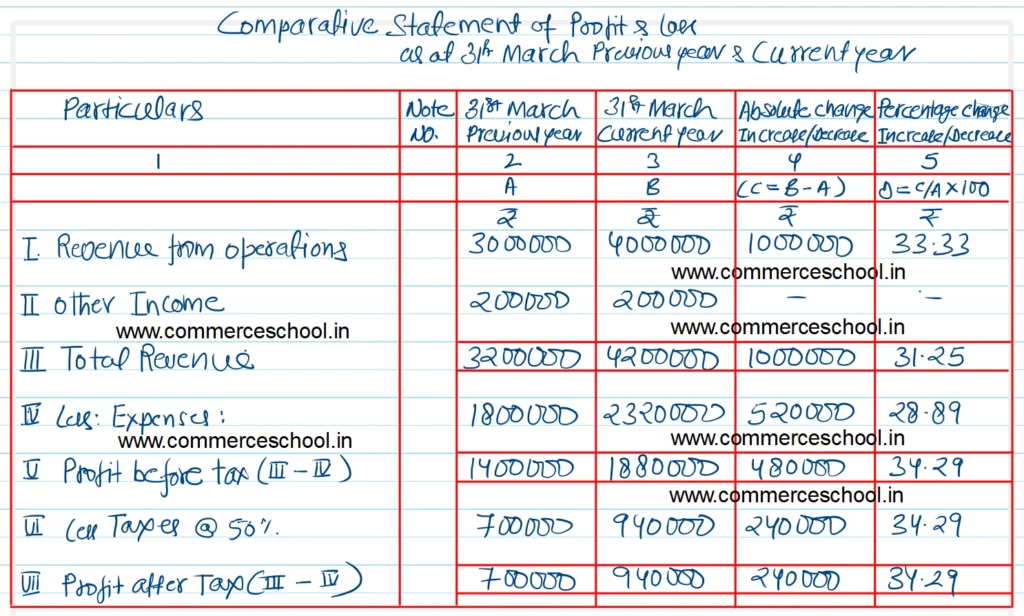 Comparative Statement of Profit & Loss
as at 31st March Previous year & Current year
Particulars Note No. 31st March Previous year 31st March Current year Absolute change Increase/Decrease Percentage change Increase/Decrease
1 2 3 4 5
A B (C = B - A) D = C/A × 100
₹ ₹ ₹ ₹
I. Revenue from operations 3000000 4000000 1000000 33.33
www.commerceschool.in
II other Income 200000 200000 — —
www.commerceschool.in www.commerceschool.in
III Total Revenue 3200000 4200000 1000000 31.25
IV Less: Expenses: 1800000 2320000 520000 28.89
www.commerceschool.in www.commerceschool.in
V Profit before tax (III - IV) 1400000 1880000 480000 34.29
www.commerceschool.in
VI Less Taxes @ 50%. 700000 940000 240000 34.29
VII Profit after Tax (III - IV) 700000 940000 240000 34.29